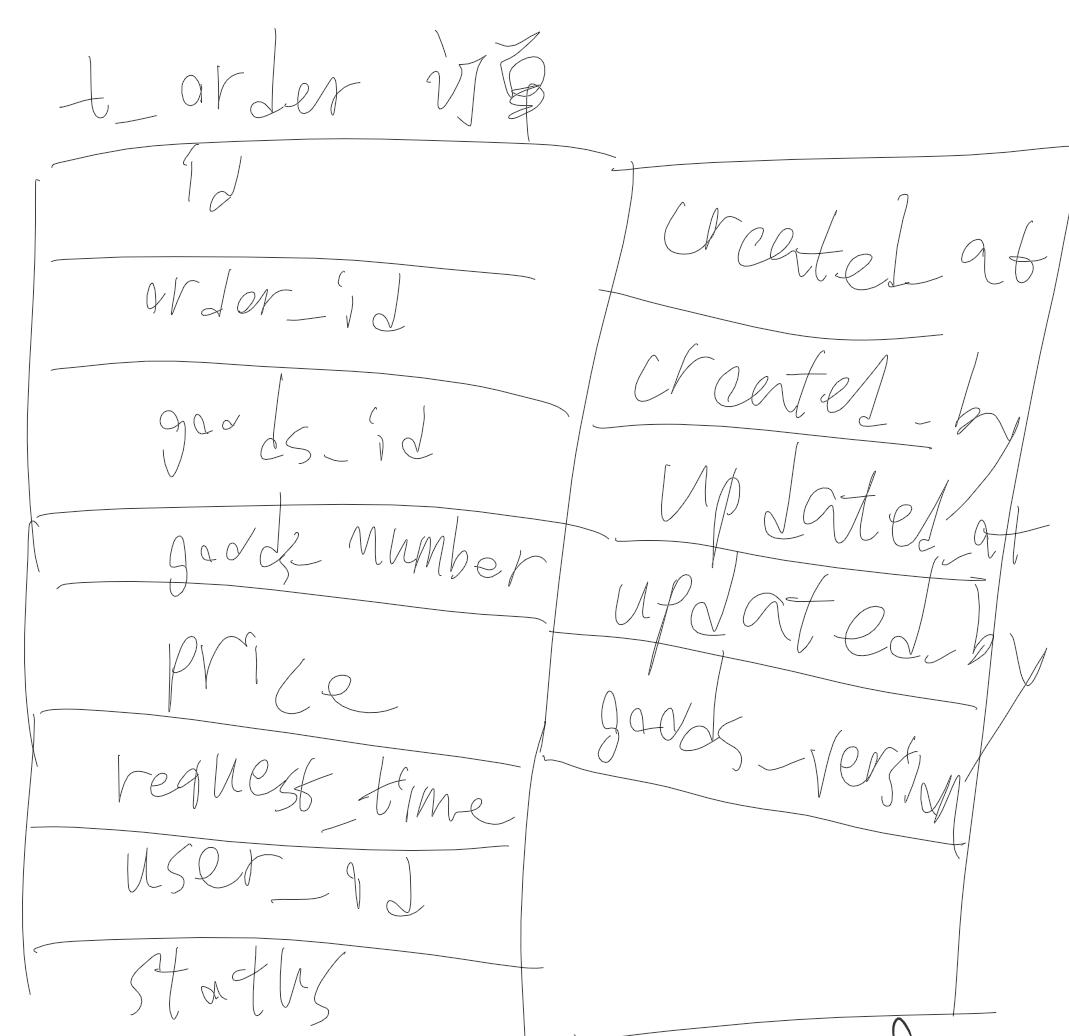 t_order 订单
id
order_id
goods_id
goods_number
price
request_time
user_id
status
created_at
created_by
updated_at
updated_by
goods_version